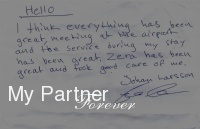 Hello
I think everything has been
great, meeting at the airport
and the service during my stay
has been great. Zera has been
great and took good care of me.
Johan Larsson
My Partner
Forever